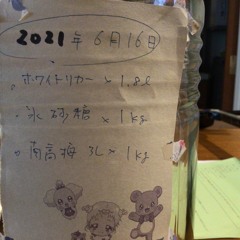 2021年6月16日
・ホワイトリカー×1.8ℓ
・氷砂糖×1kg
・南高梅3L×1kg